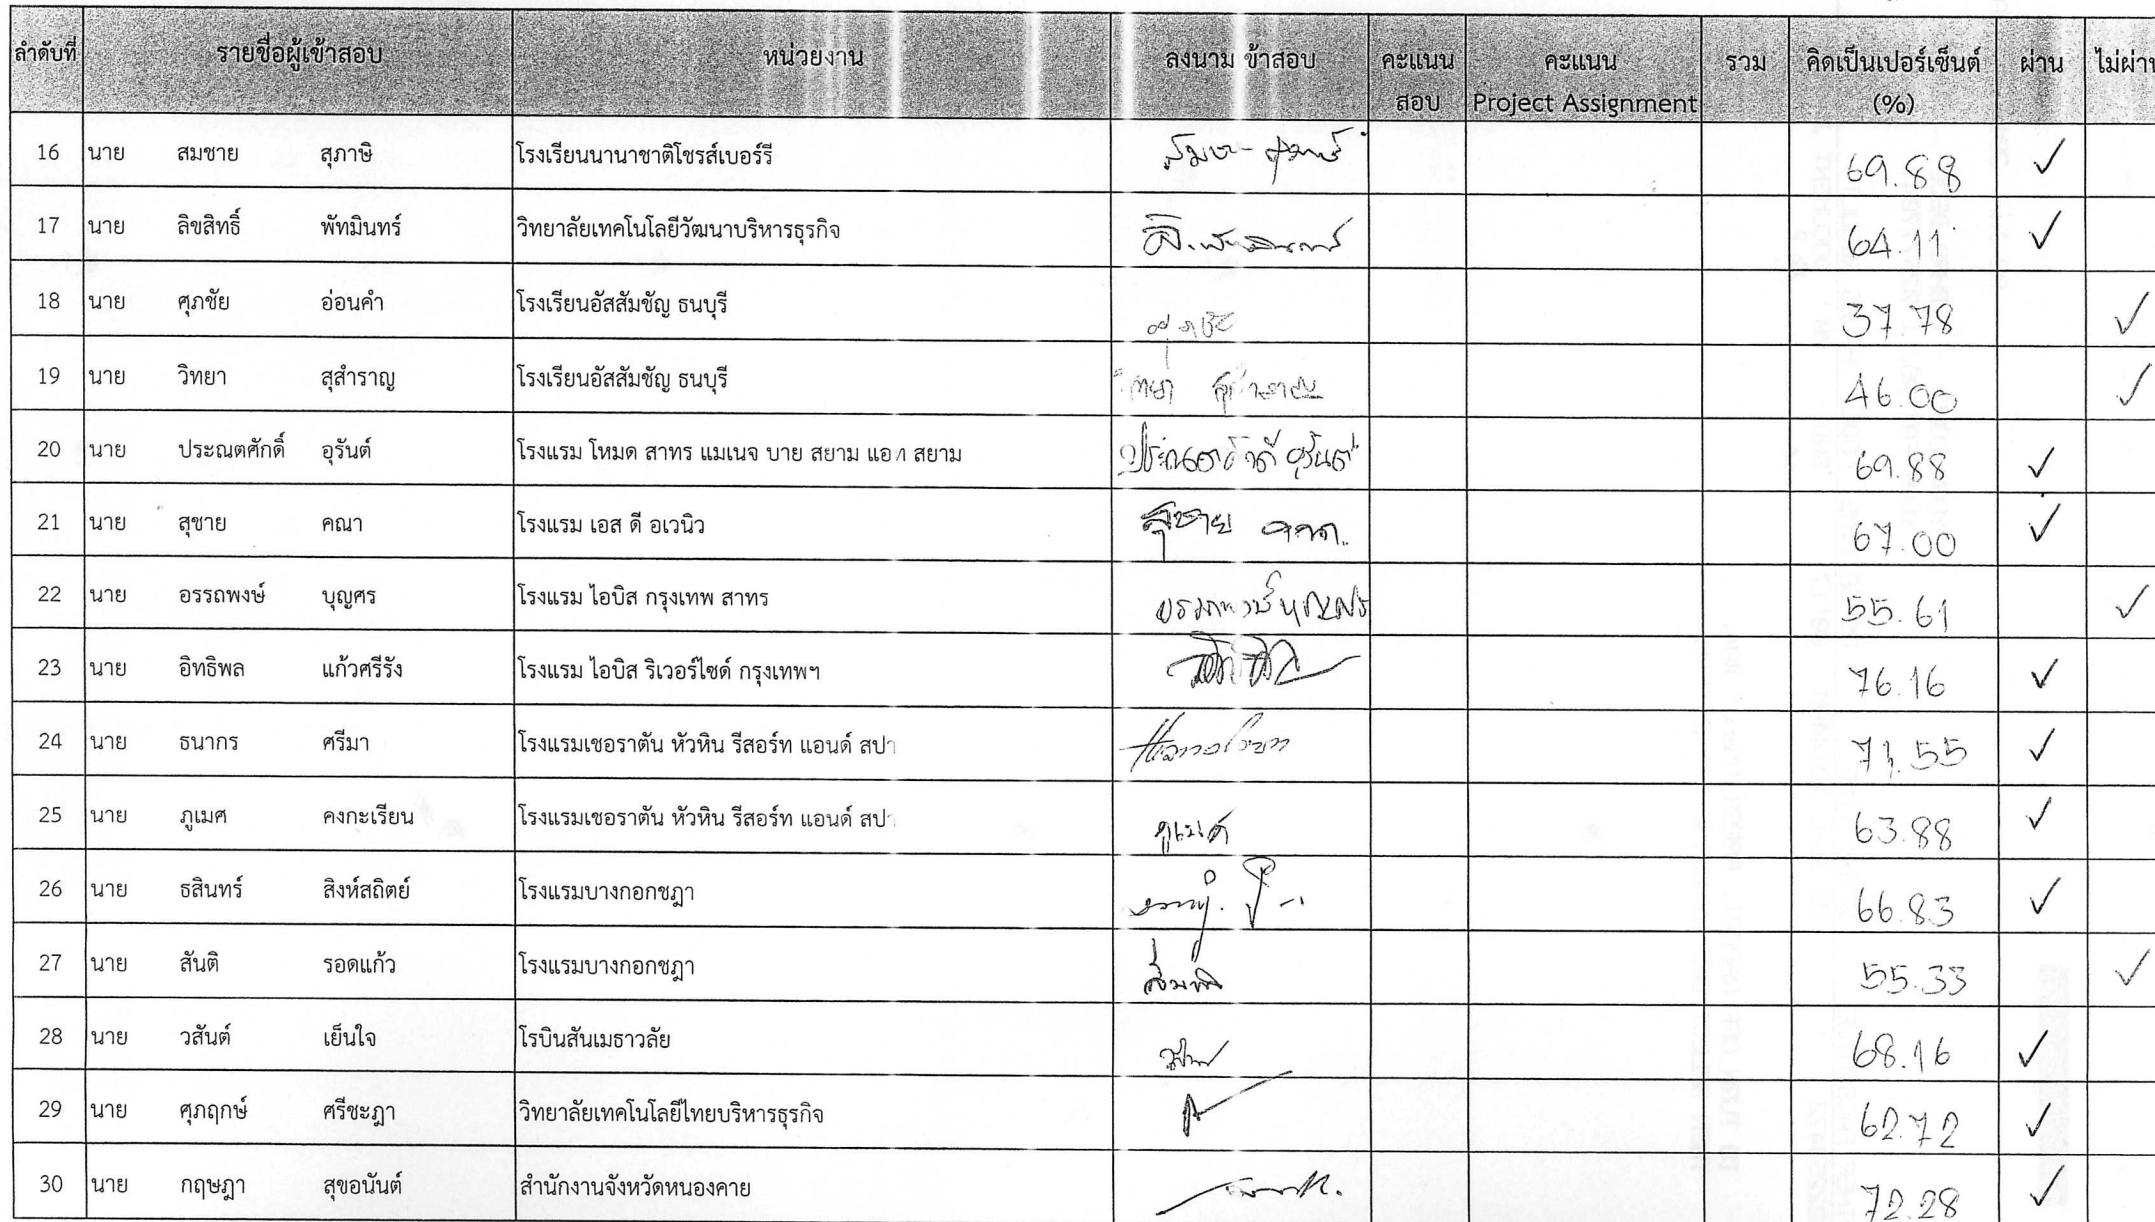 ลำดับที่ รายชื่อผู้เข้าสอบ หน่วยงาน ลงนาม ข้าสอบ คะแนน คะแนน รวม คิดเป็นเปอร์เซ็นต์ ผ่าน ไม่ผ่าน
สอบ Project Assignment (%)
16 นาย สมชาย สุภาษิ โรงเรียนนานาชาติโชรส์เบอร์รี 69.88 ✓
17 นาย ลิขสิทธิ์ พัทมินทร์ วิทยาลัยเทคโนโลยีวัฒนาบริหารธุรกิจ 64.11 ✓
18 นาย ศุภชัย อ่อนคำ โรงเรียนอัสสัมชัญ ธนบุรี ศุภชัย 37.78 ✓
19 นาย วิทยา สุสำราญ โรงเรียนอัสสัมชัญ ธนบุรี วิทยา สุสำราญ 46.00 ✓
20 นาย ประณตศักดิ์ อุรันต์ โรงแรม โหมด สาทร แมเนจ บาย สยาม แอท สยาม ประณตศักดิ์ อุรันต์ 69.88 ✓
21 นาย สุชาย คณา โรงแรม เอส ดี อเวนิว สุชาย คณา 67.00 ✓
22 นาย อรรถพงษ์ บุญศร โรงแรม ไอบิส กรุงเทพ สาทร อรรถพงษ์ บุญศร 55.61 ✓
23 นาย อิทธิพล แก้วศรีรัง โรงแรม ไอบิส ริเวอร์ไซด์ กรุงเทพฯ 76.16 ✓
24 นาย ธนากร ศรีมา โรงแรมเชอราตัน หัวหิน รีสอร์ท แอนด์ สปา 71.55 ✓
25 นาย ภูเมศ คงกะเรียน โรงแรมเชอราตัน หัวหิน รีสอร์ท แอนด์ สปา ภูเมศ 63.88 ✓
26 นาย ธสินทร์ สิงห์สถิตย์ โรงแรมบางกอกชฎา 66.83 ✓
27 นาย สันติ รอดแก้ว โรงแรมบางกอกชฎา สันติ 55.33 ✓
28 นาย วสันต์ เย็นใจ โรบินสันเมธาวลัย 68.16 ✓
29 นาย ศุภฤกษ์ ศรีชะฎา วิทยาลัยเทคโนโลยีไทยบริหารธุรกิจ 62.72 ✓
30 นาย กฤษฎา สุขอนันต์ สำนักงานจังหวัดหนองคาย 72.28 ✓